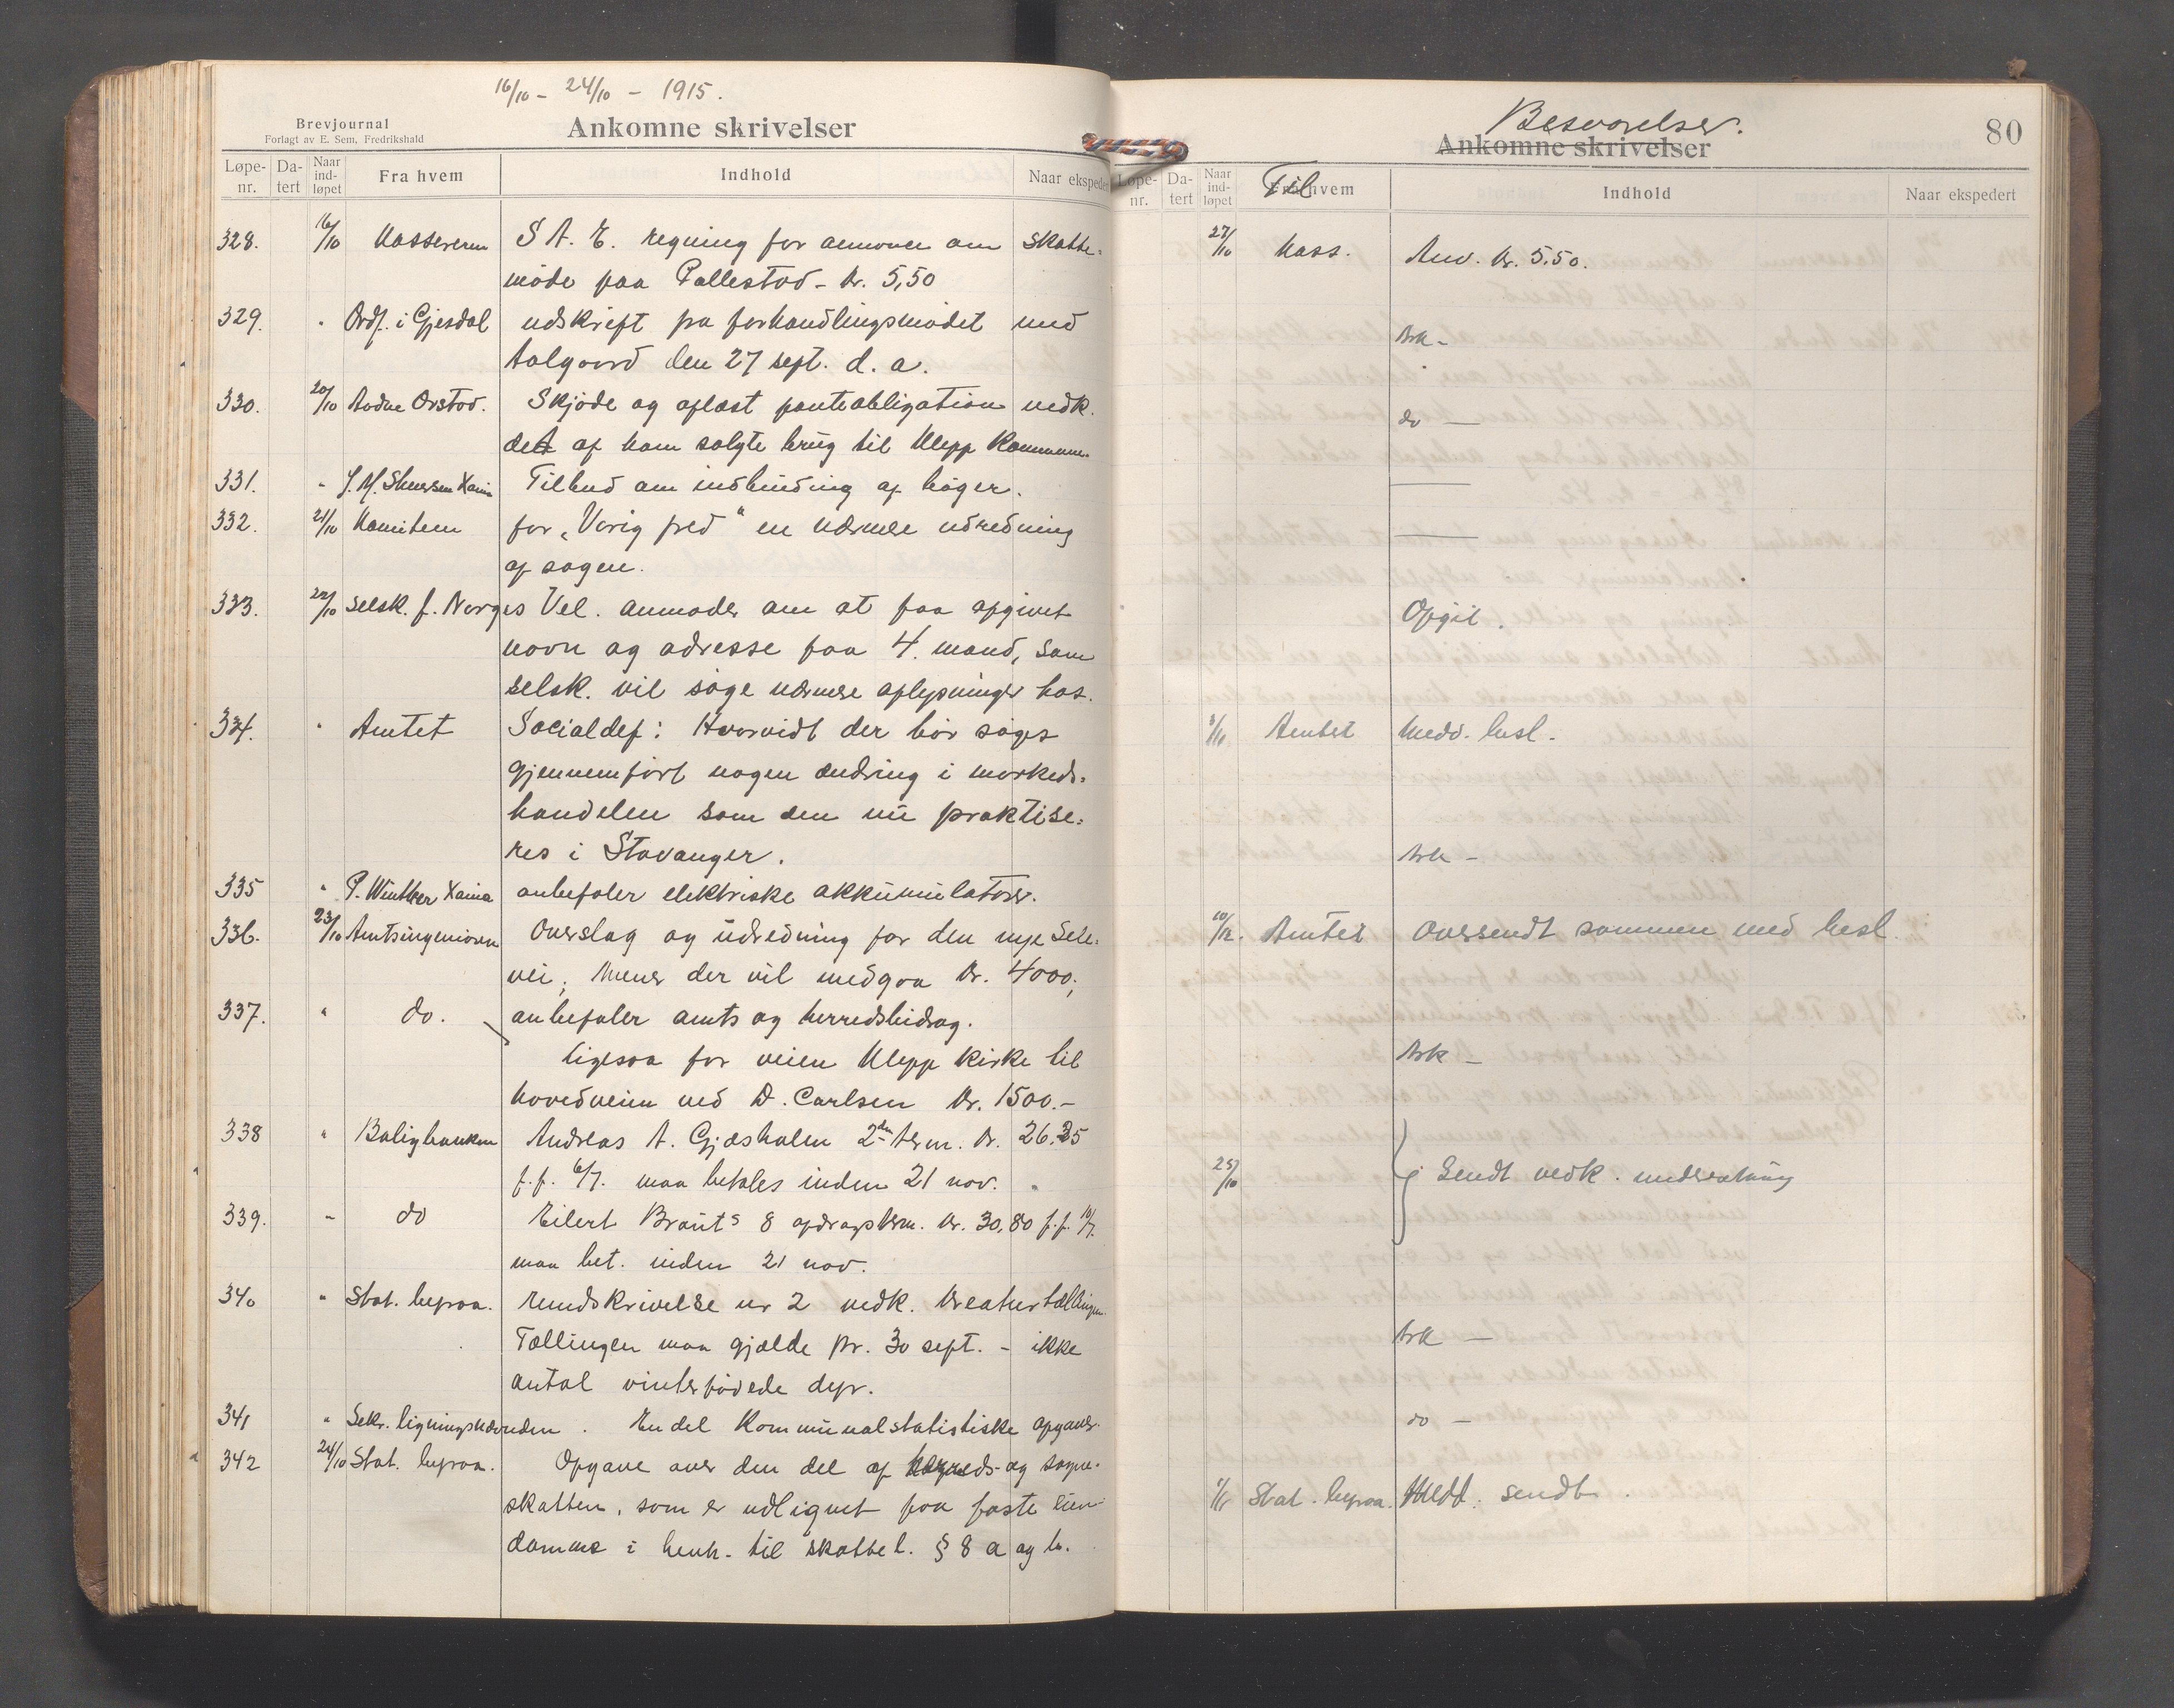 16/10 - 24/10 - 1915.
Brevjournal
Forlagt av E. Sem, Fredrikshald
Ankomne skrivelser
Løpe-nr. Da-tert Naar ind-løpet Fra hvem Indhold Naar ekspedert
328. 16/10 Kassereren S A. E. regning for annonce om skatte-
møde paa Pallestad - kr. 5,50
329. " Ordf. i Gjesdal udskrift fra forhandlingsmødet med
Aalgaard den 27 sept. d. a.
330. 20/10 Aadne Orstad. Skjøde og aflæst panteobligation vedk.
det af ham solgte brug til Klepp Kommune.
331. " Tilbud om indbinding af bøger.
332. 21/10 Komiteen for „Varig fred" en nærmere udredning
af sagen.
333. 22/10 Selsk. f. Norges Vel. anmoder om at faa opgivet
navn og adresse paa 4. mand, som
selsk. vil søge nærmere oplysninger hos.
334. " Amtet Socialdep: Hvorvidt der bør søges
gjennemført nogen ændring i markeds-
handelen som den nu praktise-
res i Stavanger.
335 " P. Winther Xania anbefaler elektriske akkumulatorer.
336. 23/10 Amtsingeniøren Overslag og udredning for den nye Sele-
vei; mener der vil medgaa kr. 4000;
337. " do. anbefaler amts og herredsbidrag.
ligesaa for veien Klepp kirke til
hovedveien ved D. Carlsen kr. 1500.-
338 " Boligbanken Andreas A. Gjæsholm 2den term. kr. 26.35
f.f. 6/7. maa betales inden 21 nov.
339. - do Eilert Brauts 8 afdragsterm. kr. 30,80 f.f. 10/7.
maa bet. inden 21 nov.
340 " Stat. byraa. rundskrivelse nr 2 vedk. kreaturtællingen.
Tællingen maa gjælde pr. 30 sept. - ikke
antal vinterfødede dyr.
341 " Sekr. ligningsnævnden. En del kommunalstatistiske opgaver.
342 24/10 Stat. byraa. Opgave over den del af herreds- og sogne-
skatten, som er udlignet paa faste eien-
domme i henh. til skattel. § 8 a og b.
80
Besvarelser.
Ankomne skrivelser
Løpe-nr. Da-tert Naar ind-løpet Fra hvem Til Indhold Naar ekspedert
27/10 Kass. Anv. kr. 5.50.
Ark -
do -
Opgit.
Amtet Medd. besl.
Ark -
10/12. Amtet Oversendt sammen med besl.
Ark -
25/10 Sendt vedk. underretning
Ark -
do -
Stat. byraa. Medd. sendt.